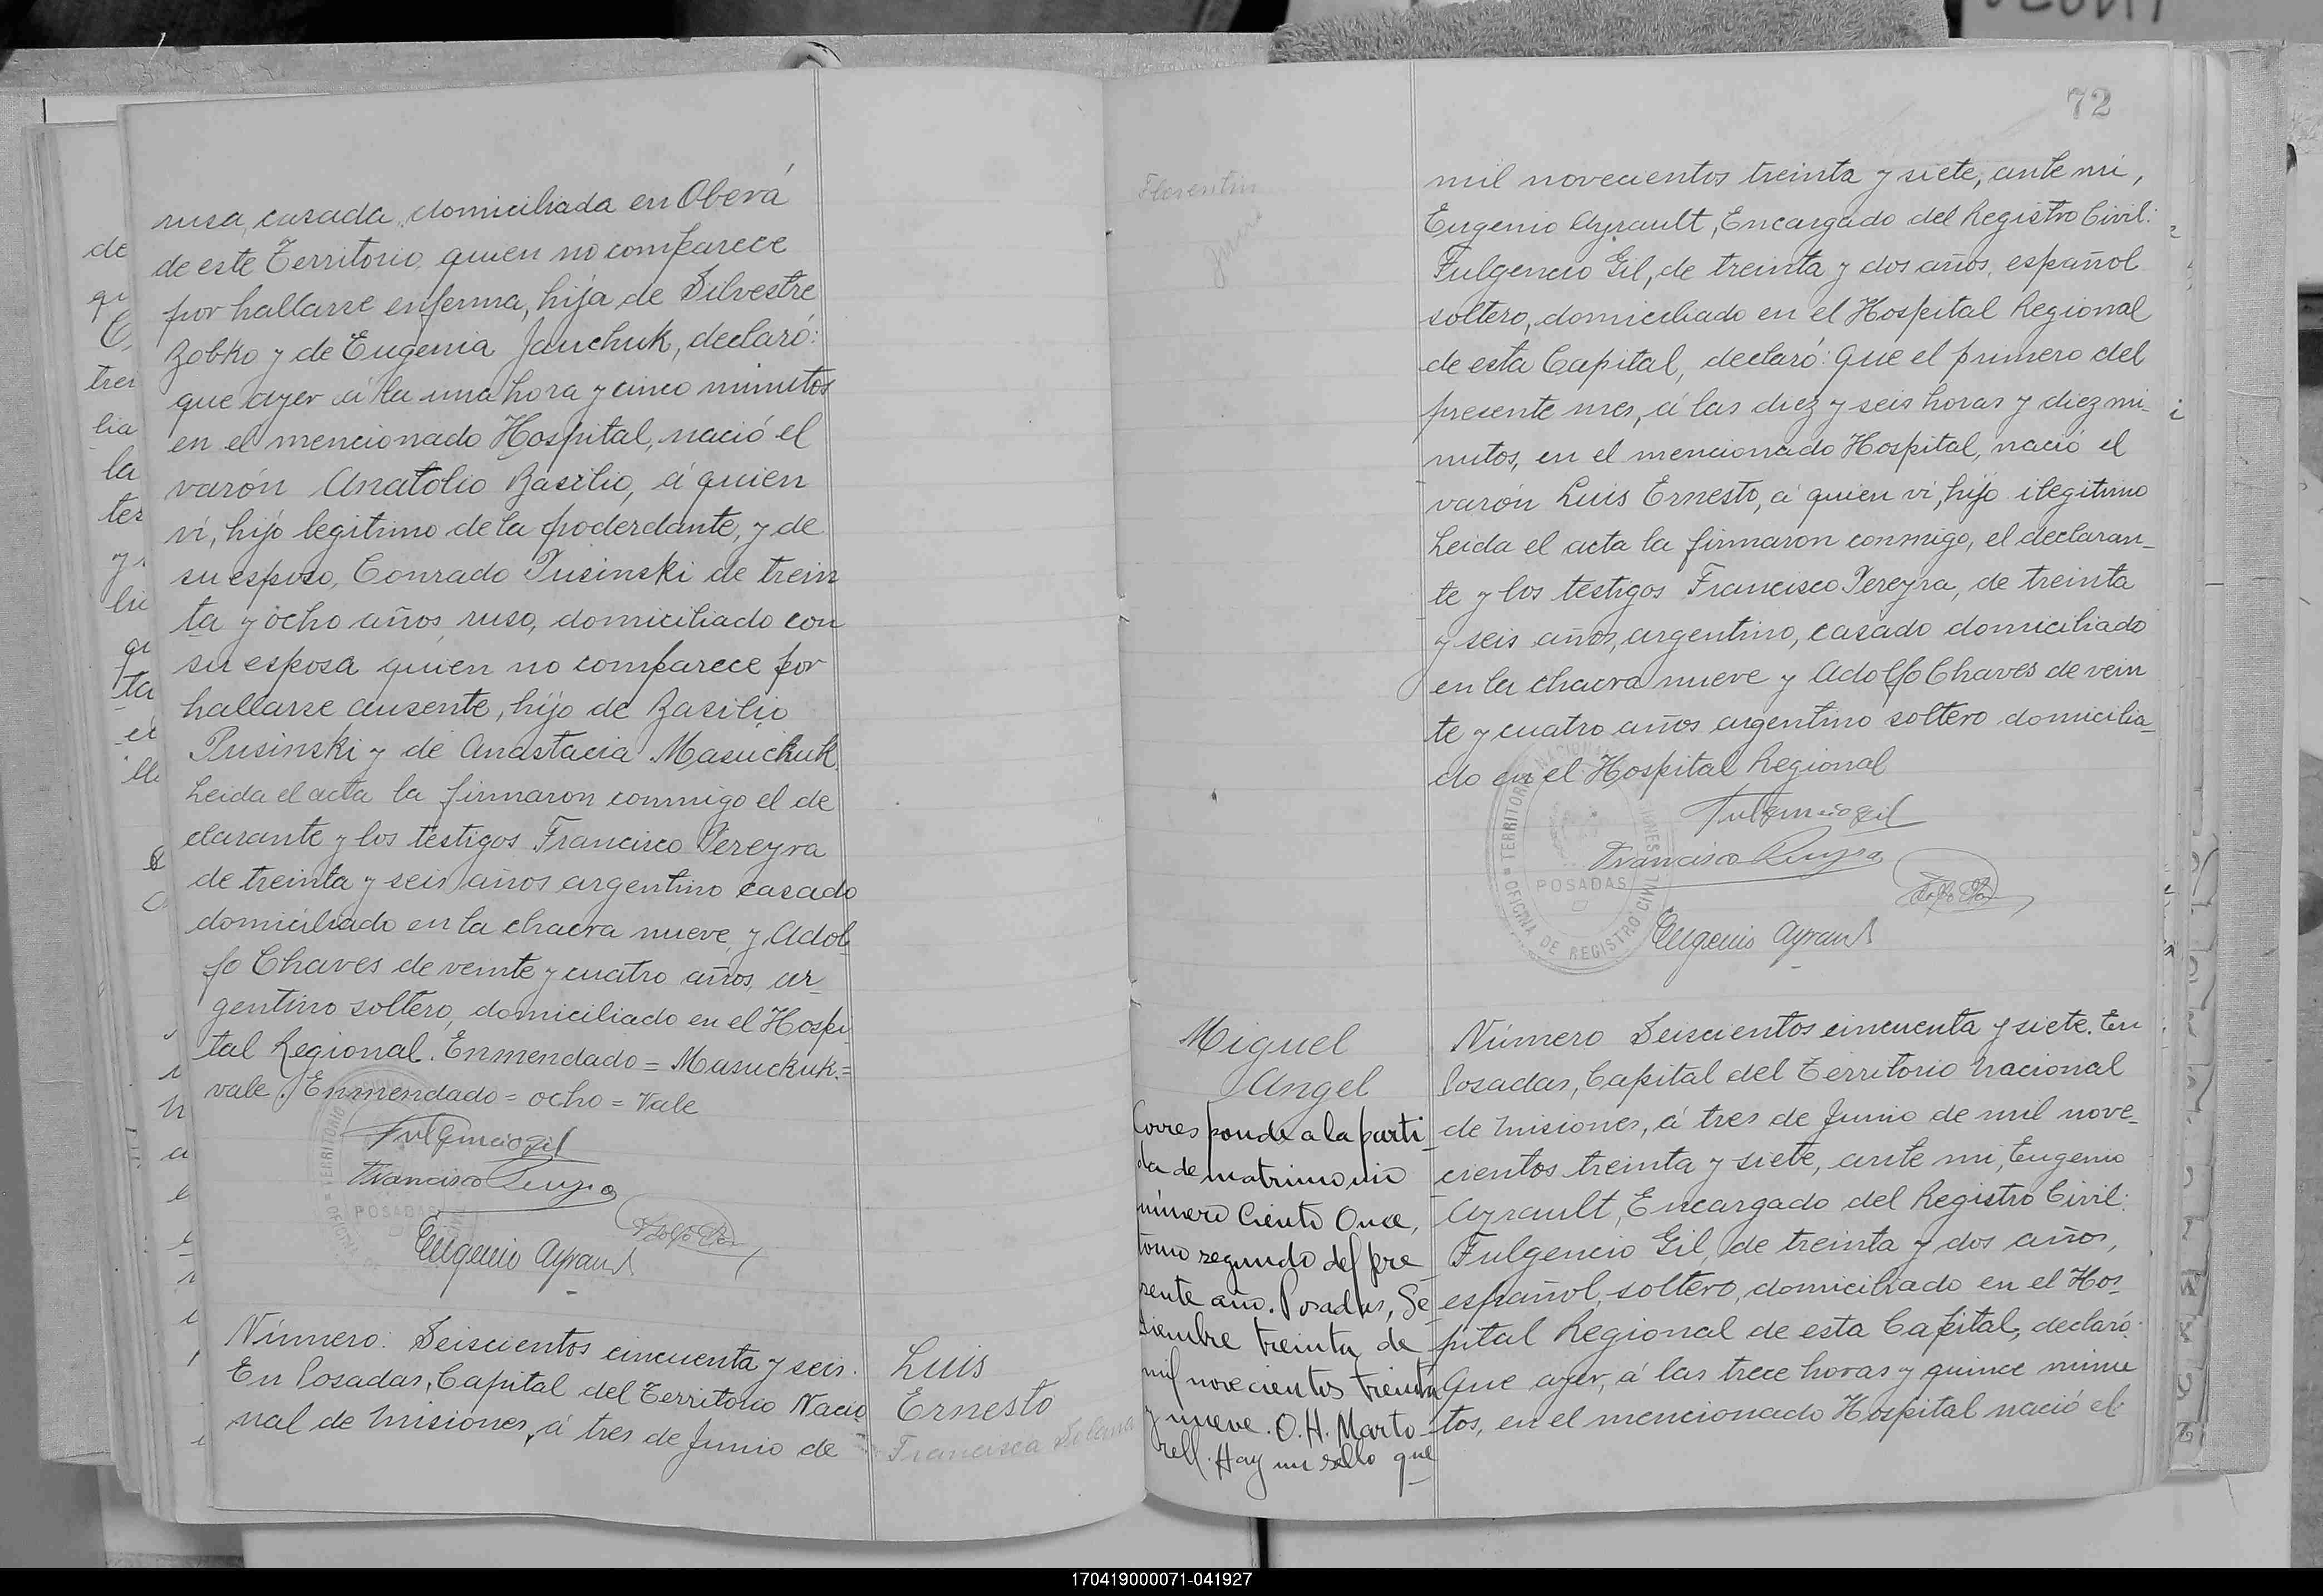 rusa, casada, domiciliada en Oberá
de este Territorio, quien no comparece
por hallarse enferma, hija de Silvestre
Zobko y de Eugenia Jauchuk, declaró:
que ayer á la una hora y cinco minutos
en el mencionado Hospital, nació el
varón Anatolio Basilio, á quien
ví, hijo legitimo de la poderdante, y de
su esposo, Conrado Pusinski de trein
ta y ocho años, ruso, domiciliado con
su esposa quien no comparece por
hallarse ausente, hijo de Basilio
Pusinski y de Anastacia Masuchuk.
Leida el acta la firmaron conmigo el de
clarante y los testigos Francisco Pereyra
de treinta y seis años argentino casado
domiciliado en la chacra nueve, y Adol-
fo Chaves de veinte y cuatro años, ar-
gentino soltero, domiciliado en el Hospi-
tal Regional. Enmendado = Masuckuk.=
vale. Enmendado = ocho = Vale
Fulgencio Gil
Francisco Pereyra
POSADAS
Eugenio Ayrault
Número: Seiscientos cincuenta y seis.
En Posadas, Capital del Territorio Nacio
nal de Misiones, á tres de Junio de
Luis
Ernesto
Francisca
72
Florentin
mil novecientos treinta y siete, ante mi,
Eugenio Ayrault, Encargado del Registro Civil:
Fulgencio Gil, de treinta y dos años, español
soltero, domiciliado en el Hospital Regional
de esta Capital, declaró: Que el primero del
presente mes, á las diez y seis horas y diez mi-
nutos, en el mencionado Hospital, nació el
varón Luis Ernesto, á quien ví, hijo ilegitimo
Leida el acta la firmaron conmigo, el declaran-
te y los testigos Francisco Pereyra, de treinta
y seis años, argentino, casado domiciliado
en la chacra nueve y Adolfo Chaves de vein
te y cuatro años argentino soltero domicilia-
do en el Hospital Regional
Fulgencio Gil
Francisco Pereyra
POSADAS
OFICINA DE REGISTRO CIVIL
Eugenio Ayrault
Miguel
Angel
Corresponde a la parti
da de matrimonio
número Ciento Once,
tomo segundo del pre
sente año. Posadas, Se
tiembre treinta de
mil novecientos treinta
y nueve. O. H. Marto-
rell. Hay un sello que
Número Seiscientos cincuenta y siete. En
Posadas, Capital del Territorio Nacional
de Misiones, á tres de Junio de mil nove-
cientos treinta y siete, ante mi, Eugenio
Ayrault, Encargado del Registro Civil:
Fulgencio Gil, de treinta y dos años,
español, soltero, domiciliado en el Hos-
pital Regional de esta Capital, declaró:
Que ayer, á las trece horas y quince minu
tos, en el mencionado Hospital nació el
170419000071-041927